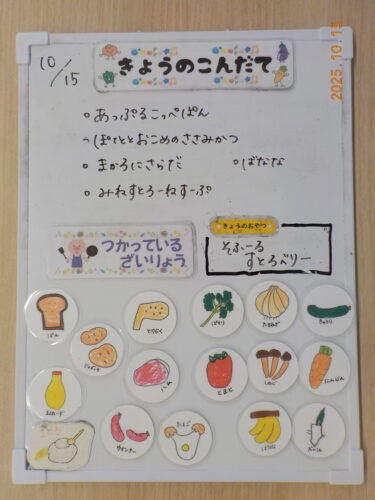 2025.10.15
10/15
きょうのこんだて
・あっぷるこっぺぱん
・ぽてととおこめのささみかつ
・まかろにさらだ ・ばなな
・みねすとろーねすーぷ
つかっている
ざいりょう
きょうのおやつ
そふーる
すとろべりー
ぱん
とりにく
ぱせり
たまねぎ
きゅうり
じゃがいも
とまと
しめじ
にんじん
まよねーず
ウインナー
たまご
ばなな